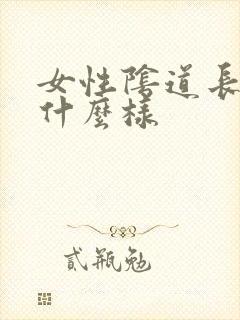 女性陰道長
什麼樣
貳瓶勉